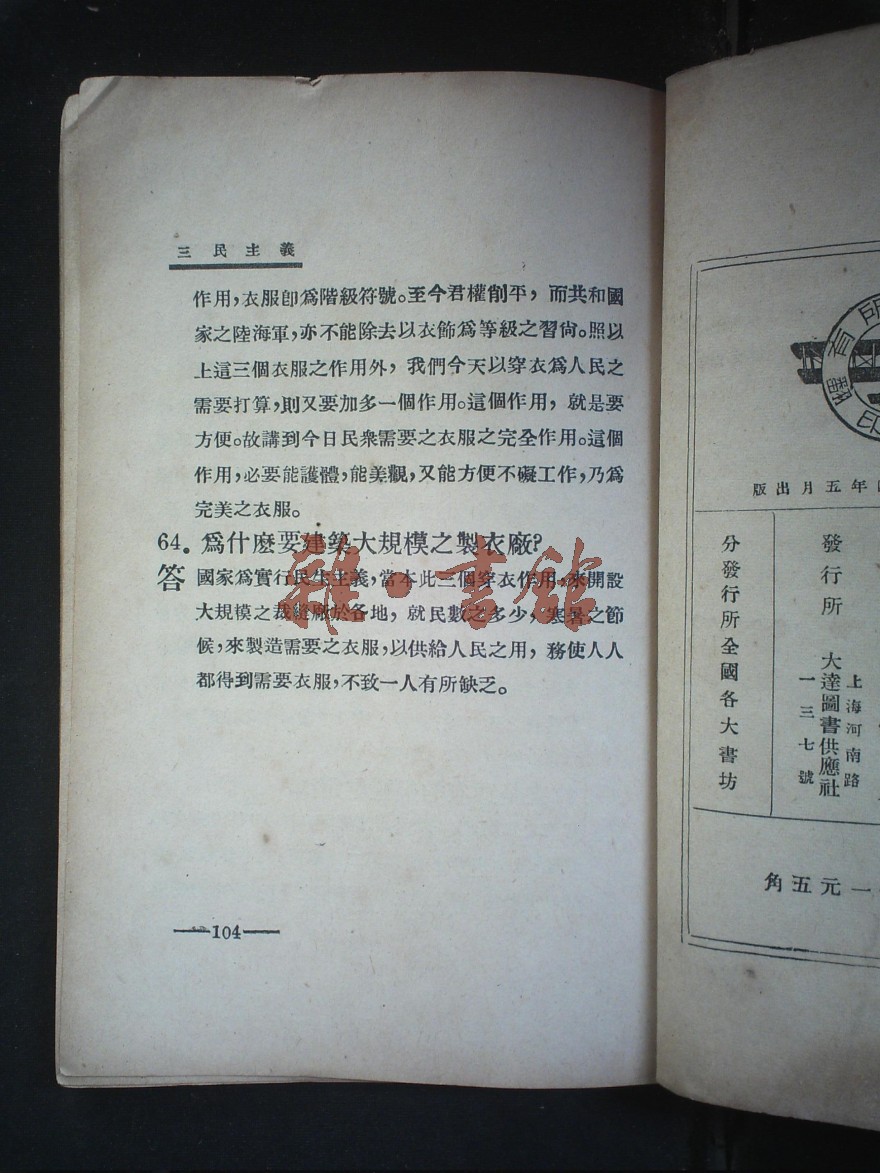 三民主義
作用，衣服卽爲階級符號。至今君權削平，而共和國
家之陸海軍，亦不能除去以衣飾爲等級之習尙。照以
上這三個衣服之作用外，我們今天以穿衣爲人民之
需要打算，則又要加多一個作用。這個作用，就是要
方便。故講到今日民衆需要之衣服之完全作用。這個
作用，必要能護體，能美觀，又能方便不礙工作，乃爲
完美之衣服。
64. 爲什麽要建築大規模之製衣廠？
答 國家爲實行民生主義，當本此三個穿衣作用，來開設
大規模之裁縫廠於各地，就民數之多少，寒暑之節
候，來製造需要之衣服，以供給人民之用，務使人人
都得到需要衣服，不致一人有所缺乏。
104
雜·書館
年五月出版
發行所
上海河南路
大達圖書供應社
一三七號
分發行所全國各大書坊
一元五角